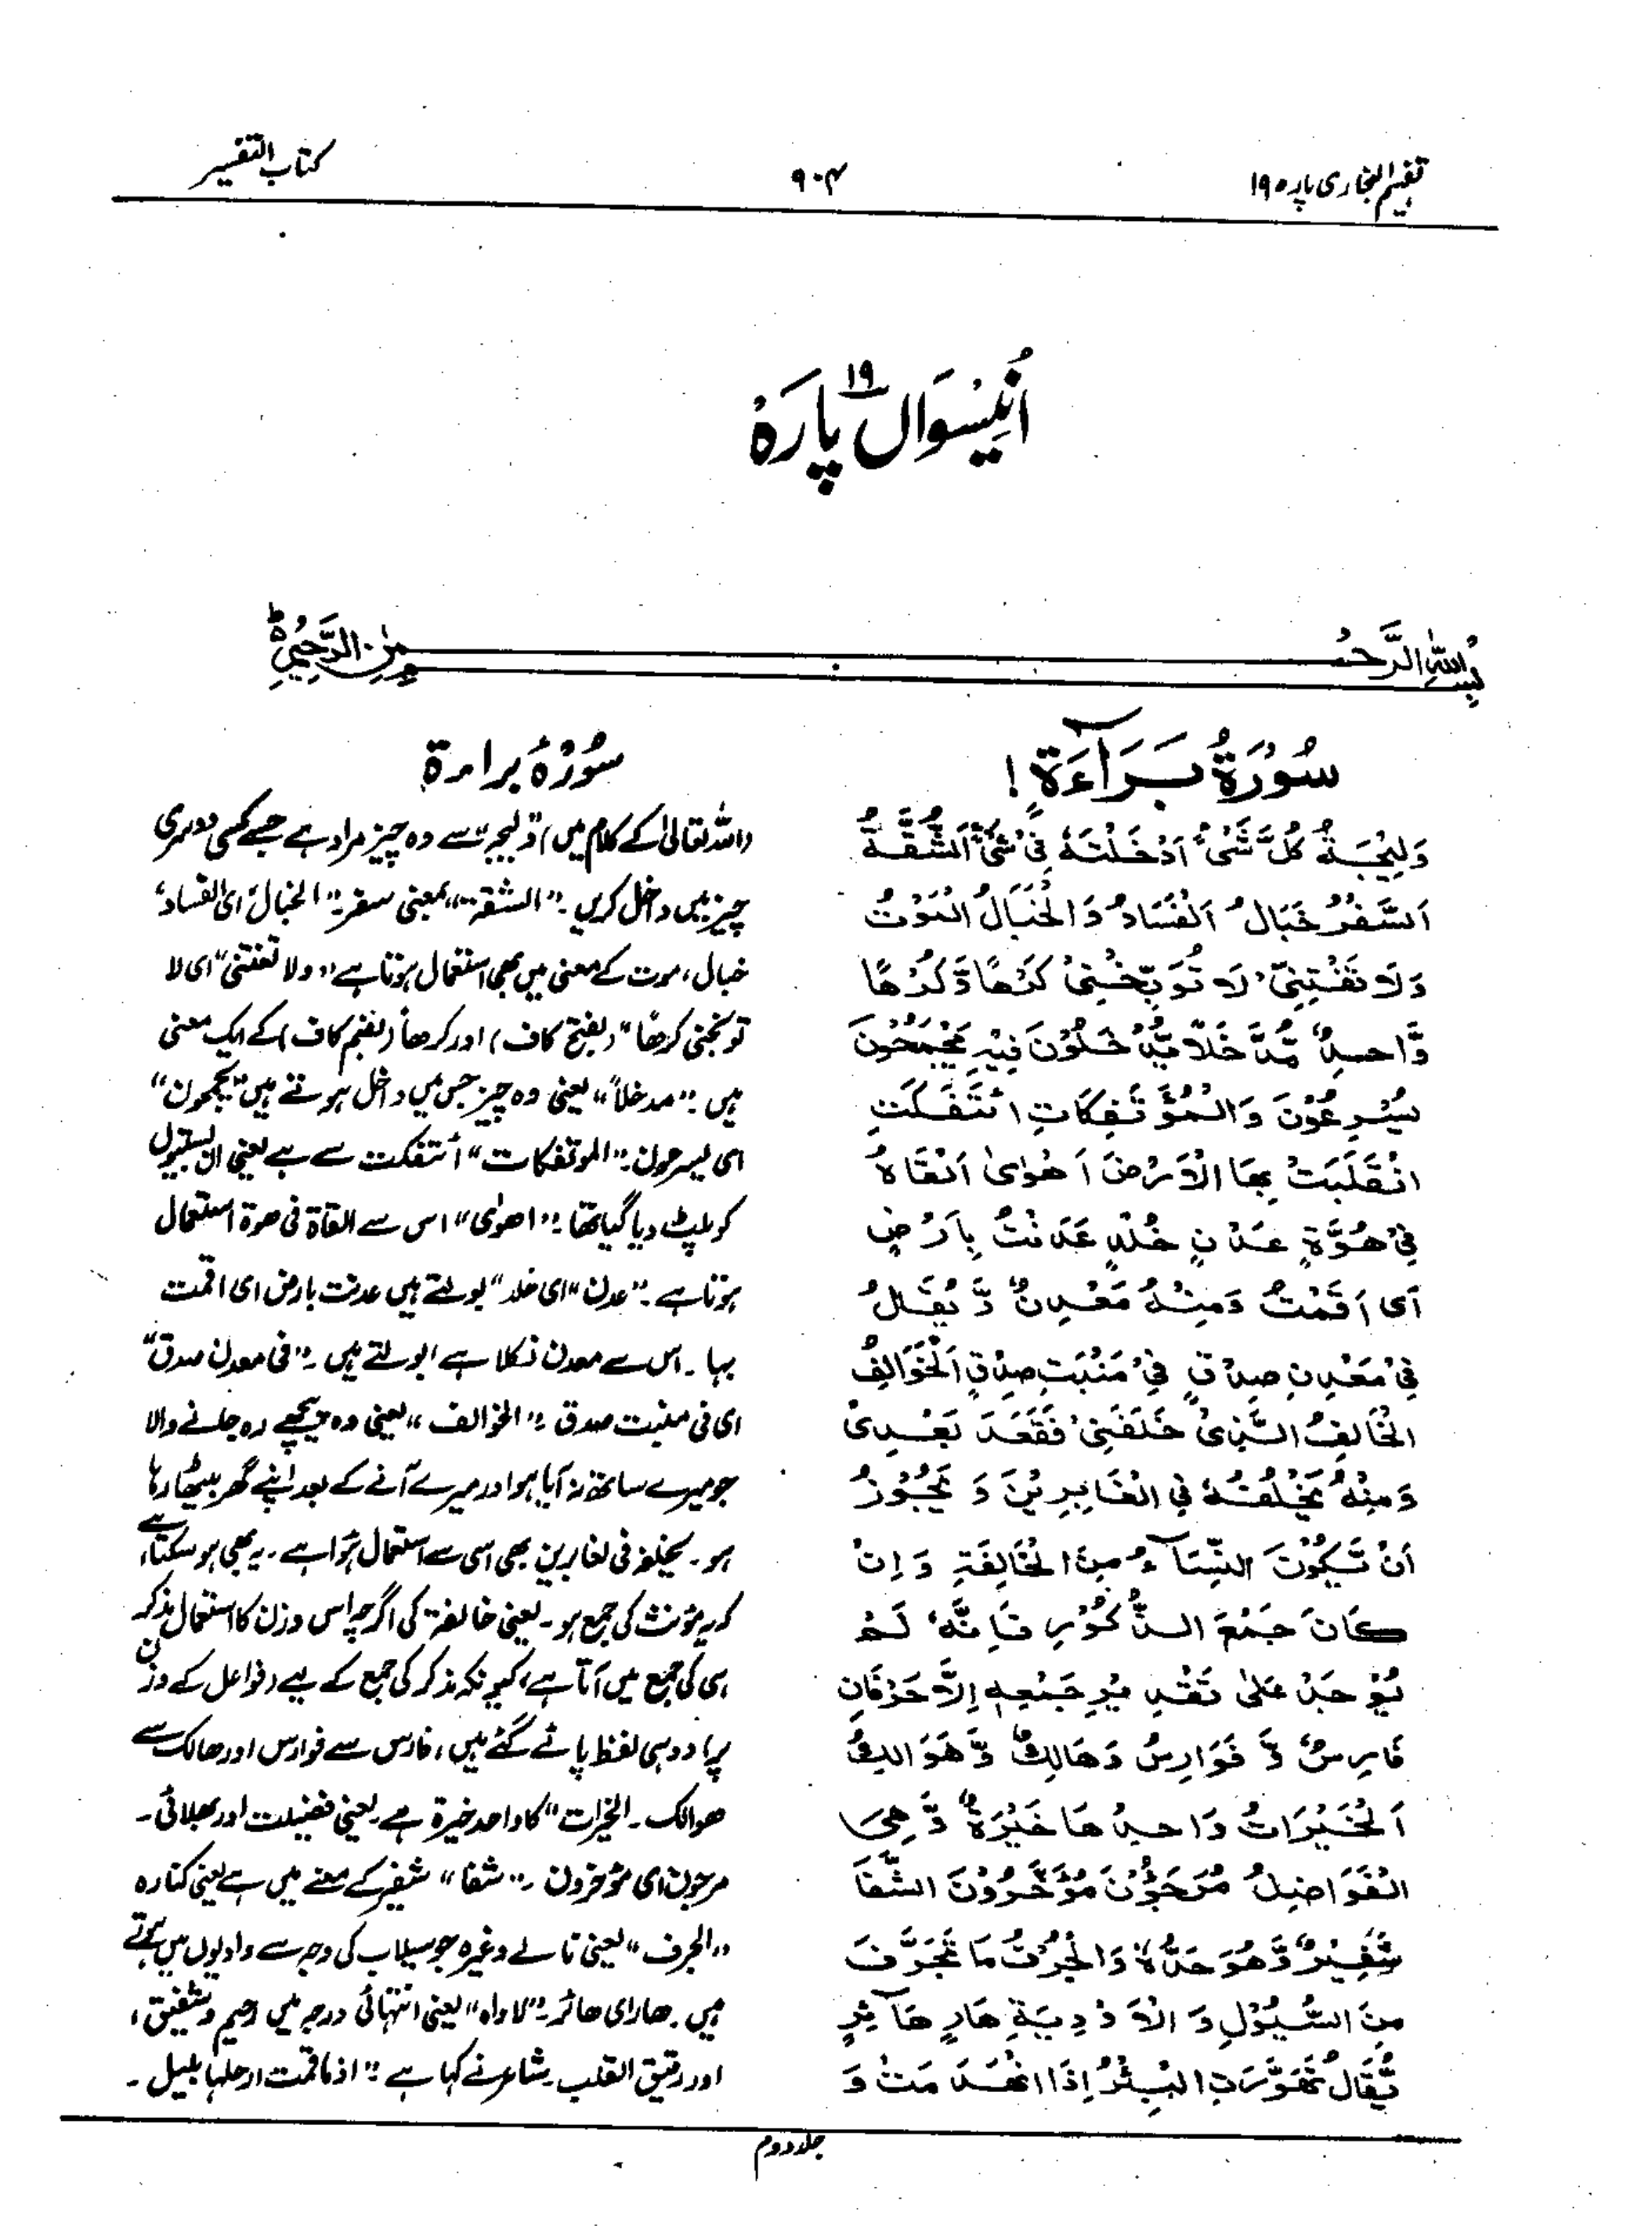 تفہیم البخاری پارہ ۱۹
۹۰۴
کتاب التفسیر
اُنِیْسوَاں ۱۹ پَارَہْ
بِسْمِ اللّٰہِ الرَّحْمٰنِ الرَّحِیْمِ ط
سُوْرَۃُ بَرَآءَۃٍ !
وَلِیْجَۃٌ کُلُّ شَیْءٍ اَدْخَلْتَہٗ فِیْ شَیْءٍ اَلشُّقَّۃُ
اَلسَّفَرُ خَبَالٌ اَلْفَسَادُ وَالْخَبَالُ الْمَوْتُ
وَلَا تَفْتِنِّیْ لَا تُوَبِّخْنِیْ کَرْھًا وَّکُرْھًا
وَّاحِدٌ مُّدَّخَلًا یُّدْخَلُوْنَ فِیْہِ یَجْمَحُوْنَ
یُسْرِعُوْنَ وَالْمُؤْتَفِکَاتِ ائْتَفَکَتِ
انْقَلَبَتْ بِھَا الْاَرْضُ اَھْوٰی اَلْقَاہُ
فِیْ ھُوَّۃٍ عَدْنٍ خُلْدٍ عَدَنْتُ بِاَرْضٍ
اَیْ اَقَمْتُ وَمِنْہُ مَعْدِنٌ وَّ یُقَالُ
فِیْ مَعْدِنِ صِدْقٍ فِیْ مَنْبَتِ صِدْقٍ اَلْخَوَالِفُ
الْخَالِفُ الَّذِیْ خَلَفَنِیْ فَقَعَدَ بَعْدِیْ
وَمِنْہُ یَخْلُفُہٗ فِی الْغَابِرِیْنَ وَ یَجُوْزُ
اَنْ تَکُوْنَ النِّسَآءُ مِنَ الْخَالِفَۃِ وَ اِنْ
کَانَ جَمْعَ الذُّکُوْرِ فَاِنَّہٗ لَمْ
یُوْجَدْ عَلٰی تَقْدِیْرِ جَمْعِہٖ اِلَّا حَرْفَانِ
فَارِسٌ وَّ فَوَارِسُ وَھَالِکٌ وَّ ھَوَالِکُ
اَلْخَیْرَاتُ وَاحِدُھَا خَیْرَۃٌ وَّ ھِیَ
الْفَوَاضِلُ مُرْجَؤُنَ مُؤَخَّرُوْنَ الشَّفَا
شَفِیْرٌ وَّھُوَ حَدُّہٗ وَالْجُرُفُ مَا تَجَرَّفَ
مِنَ السُّیُوْلِ وَ الْاَوْدِیَۃِ ھَارٍ ھَآئِرٍ
یُّقَالُ تَھَوَّرَتِ الْبِئْرُ اِذَا انْھَدَمَتْ وَ
سُوْرَۂ براءۃ
(اللہ تعالیٰ کے کلام میں) "ولیجہ" سے وہ چیز مراد ہے جسے کسی دوسری
چیز میں داخل کریں۔ "الشقۃ" بمعنی سفر۔ "الخبال" ای الفساد،
خبال، موت کے معنی میں بھی استعمال ہوتا ہے "ولا تفتنی" ای لا
توبخنی کرھًا" (بفتح کاف) اور کرھاً (بضم کاف) کے ایک معنی
ہیں۔ "مدخلاً" یعنی وہ چیز جس میں داخل ہوتے ہیں "یجمحون"
ای یسرعون۔ "الموتفکات" أئتفکت سے ہے یعنی ان بستیوں
کو پلٹ دیا گیا تھا۔ "اھوٰی" اس سے القاۃ فی ھوۃ استعمال
ہوتا ہے۔ "عدن" ای خلد" بولتے ہیں عدنت بارض ای اقمت
بہا۔ اس سے معدن نکلا ہے بولتے ہیں۔ "فی معدن صدق"
ای فی منبت صدق۔ "الخوالف" یعنی وہ پیچھے رہ جانے والا
جو میرے ساتھ نہ آیا ہو اور میرے آنے کے بعد اپنے گھر بیٹھا رہا
ہو۔ یخلفہ فی لغابرین بھی اسی سے استعمال ہوا ہے۔ یہ بھی ہو سکتا ہے،
کہ یہ مؤنث کی جمع ہو۔ یعنی خالفۃ کی اگرچہ اس وزن کا استعمال مذکر
ہی کی جمع میں آتا ہے، کیونکہ مذکر کی جمع کے لیے (فواعل کے وزن
پر) دو ہی لفظ پائے گئے ہیں، فارس سے فوارس اور ھالک سے
ھوالک۔ الخیرات" کا واحد خیرۃ ہے یعنی فضیلت اور بھلائی۔
مرجون ای مؤخرون۔ "شفا" شفیر کے معنے میں ہے یعنی کنارہ
"الجرف" یعنی نالے وغیرہ جو سیلاب کی وجہ سے وادیوں میں ہوتے
ہیں۔ ھار ای ھائر۔ "لاواہ" یعنی انتہائی درجہ میں رحیم و شفیق،
اور رقیق القلب۔ شاعر نے کہا ہے "اذا ماقمت ارحلہا بلیل۔
جلد دوم